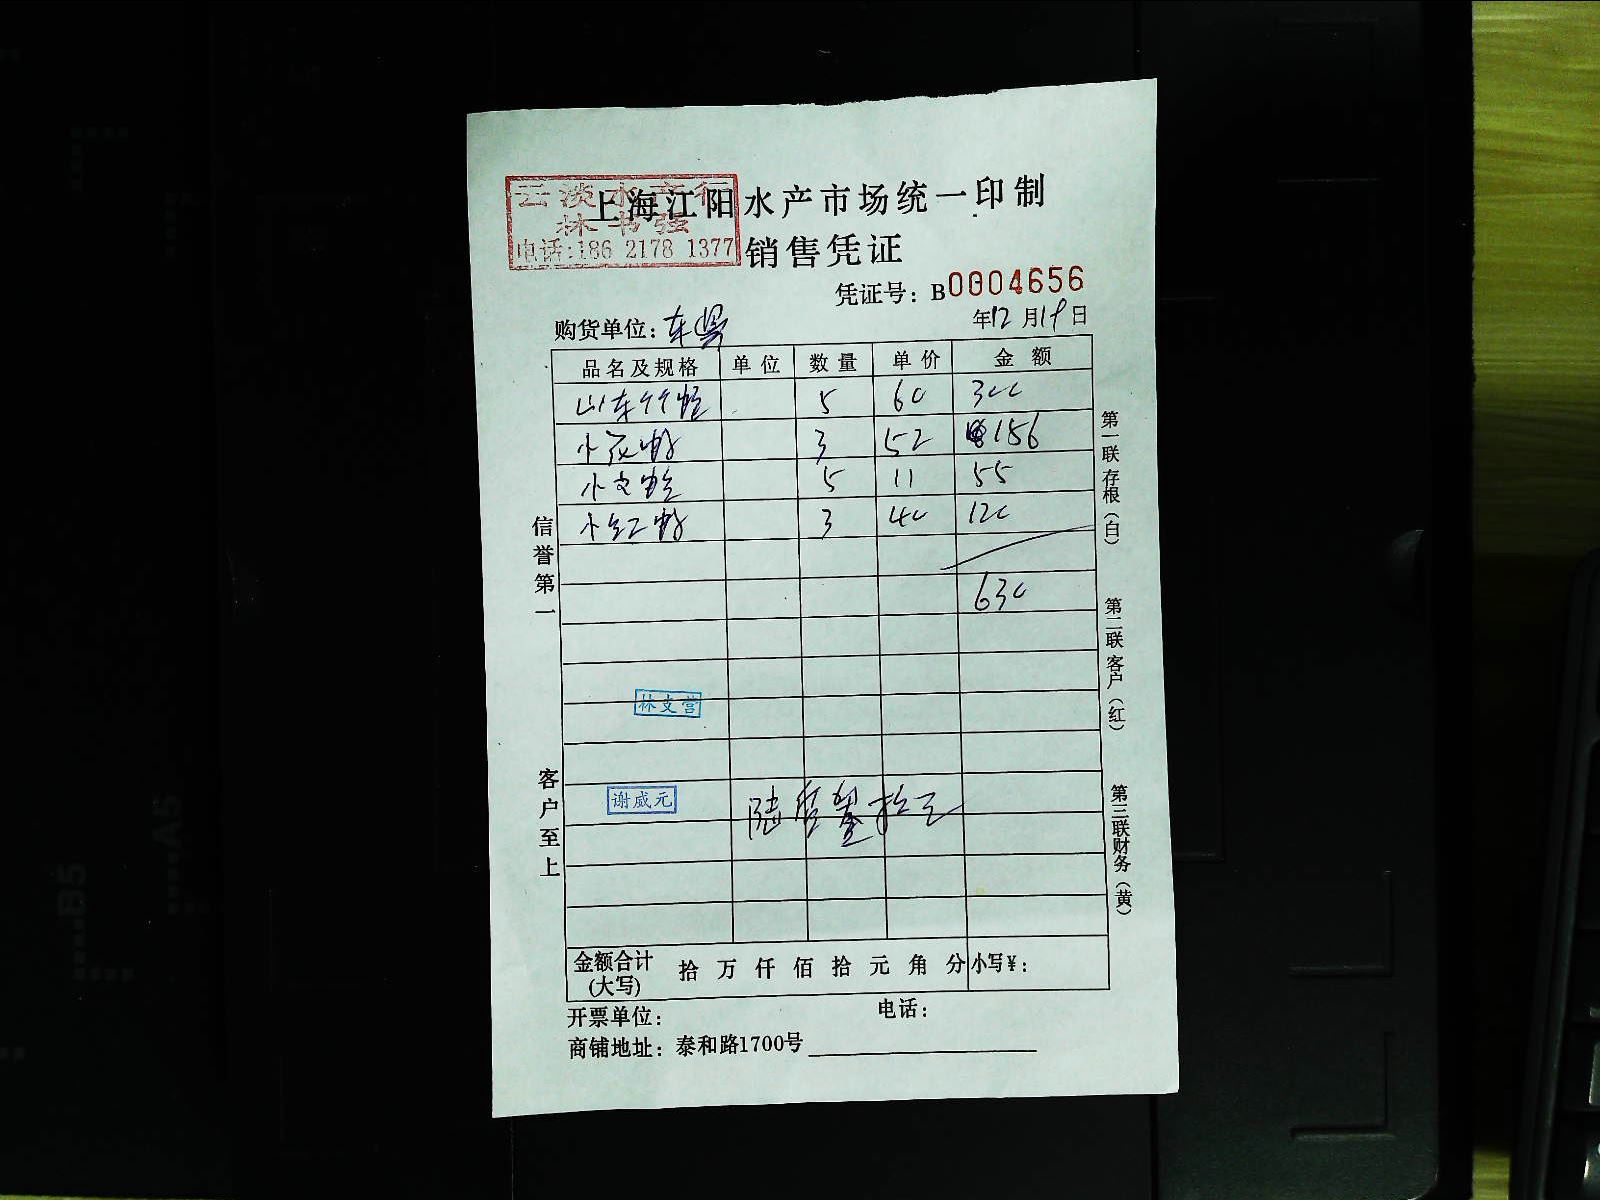 云淡水产行
林书强
电话:186 2178 1377
上海江阳水产市场统一印制
销售凭证
凭证号：B0004656
购货单位：
年12月19日
品名及规格 单位 数量 单价 金额
山东竹蛏 5 60 300
小花 3 52 156
小文蛤 5 11 55
小红 3 40 120
630
林支营
谢威元
陆佰 拾元
金额合计(大写) 拾万仟佰拾元角分 小写¥：
开票单位： 电话：
商铺地址：泰和路1700号
信誉第一
客户至上
第一联存根（白）
第二联客户（红）
第三联财务（黄）